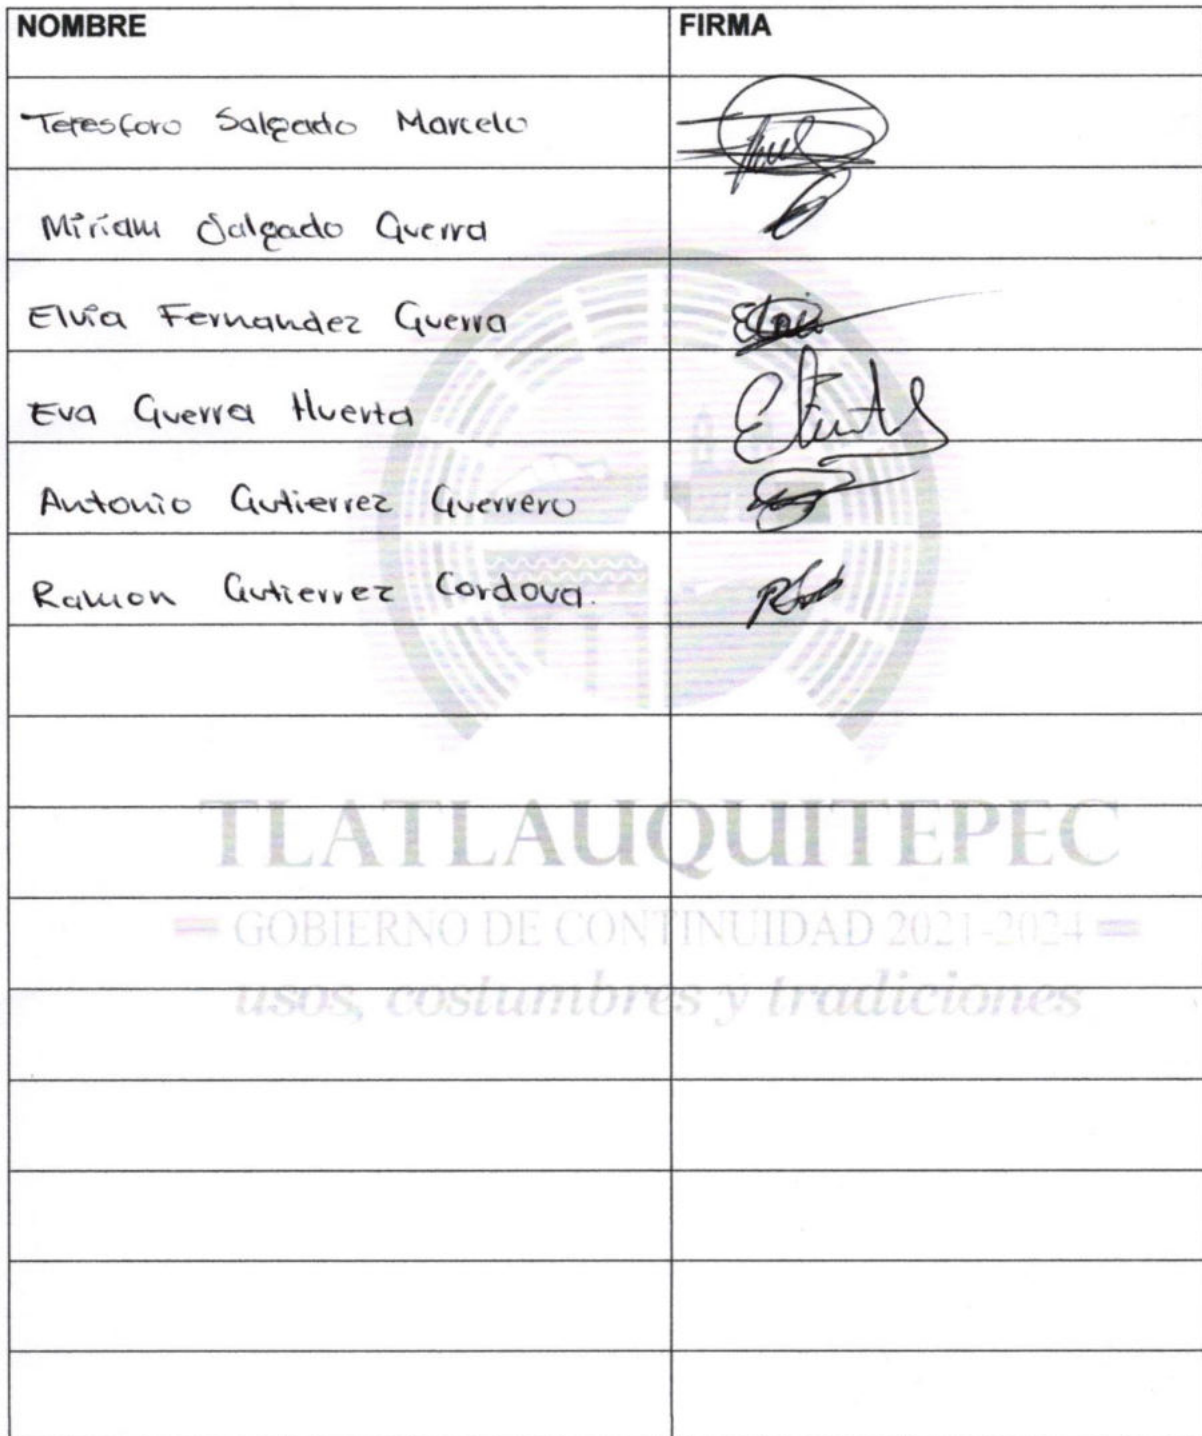 NOMBRE FIRMA
Teresforo Salgado Marcelo
Miriam Salgado Guerra
Elvia Fernandez Guerra
Eva Guerra Huerta
Antonio Gutierrez Guerrero
Ramon Gutierrez Cordova.
TLATLAUQUITEPEC
GOBIERNO DE CONTINUIDAD 2021-2024
usos, costumbres y tradiciones